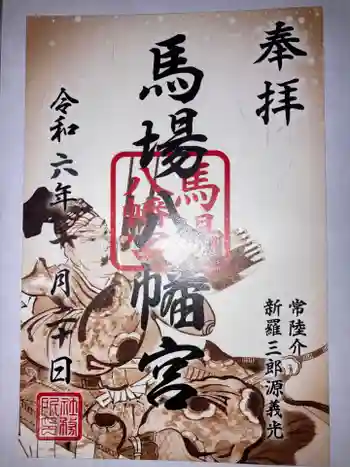 奉拝
馬場八幡宮
馬場
八幡宮
常陸介
新羅三郎源義光
令和六年 月二十日
社務
所印